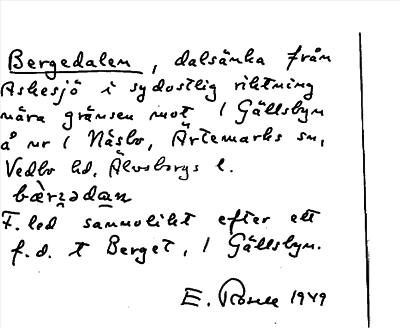 Bergedalen, dalsänka från
Askesjö i sydostlig riktning
nära gränsen mot / Gällsbyn
å nr / Näsbo, Ärtemarks sn,
Vedbo hd, Älvsborgs l.
bær̀ɜədan
F. led sannolikt efter ett
f.d. t Berget, / Gällsbyn.
E. Rosell 1949